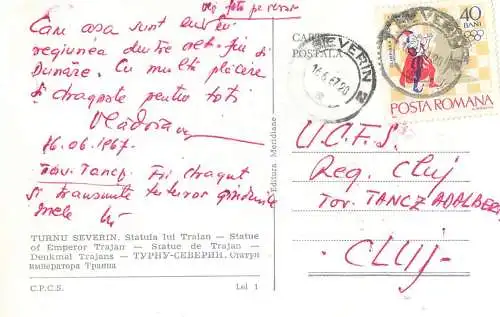 vezi foto pe verso
Cam asa sunt
regiunea dintre
Dunăre. Cu multă plăcere
și dragoste pentru toți
16.06.1967.
Tov. Tancz. Fii dragut
si transmite tuturor gandurile
mele
TURNU SEVERIN. Statuia lui Traian — Statue
of Emperor Trajan — Statue de Trajan —
Denkmal Trajans — ТУРНУ-СЕВЕРИН. Статуя
императора Траяна
C.P.C.S. Lei 1
Editura Meridiane
CARTE
POSTALĂ
SEVERIN
16.6.67.20
40
BANI
POSTA ROMANA
U.C.F.S.
Reg. Cluj
Tov. TANCZ ADALBERT
- CLUJ -